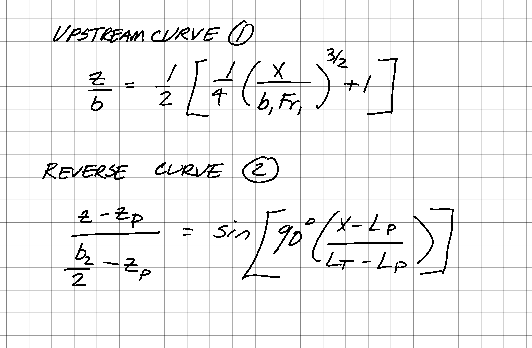 UPSTREAM CURVE ①
z/b = 1/2 [ 1/4 ( x / b₁Fr₁ )^3/2 + 1 ]
REVERSE CURVE ②
(z - z_p) / (b₂/2 - z_p) = sin [ 90° ( (x - L_p) / (L_T - L_p) ) ]